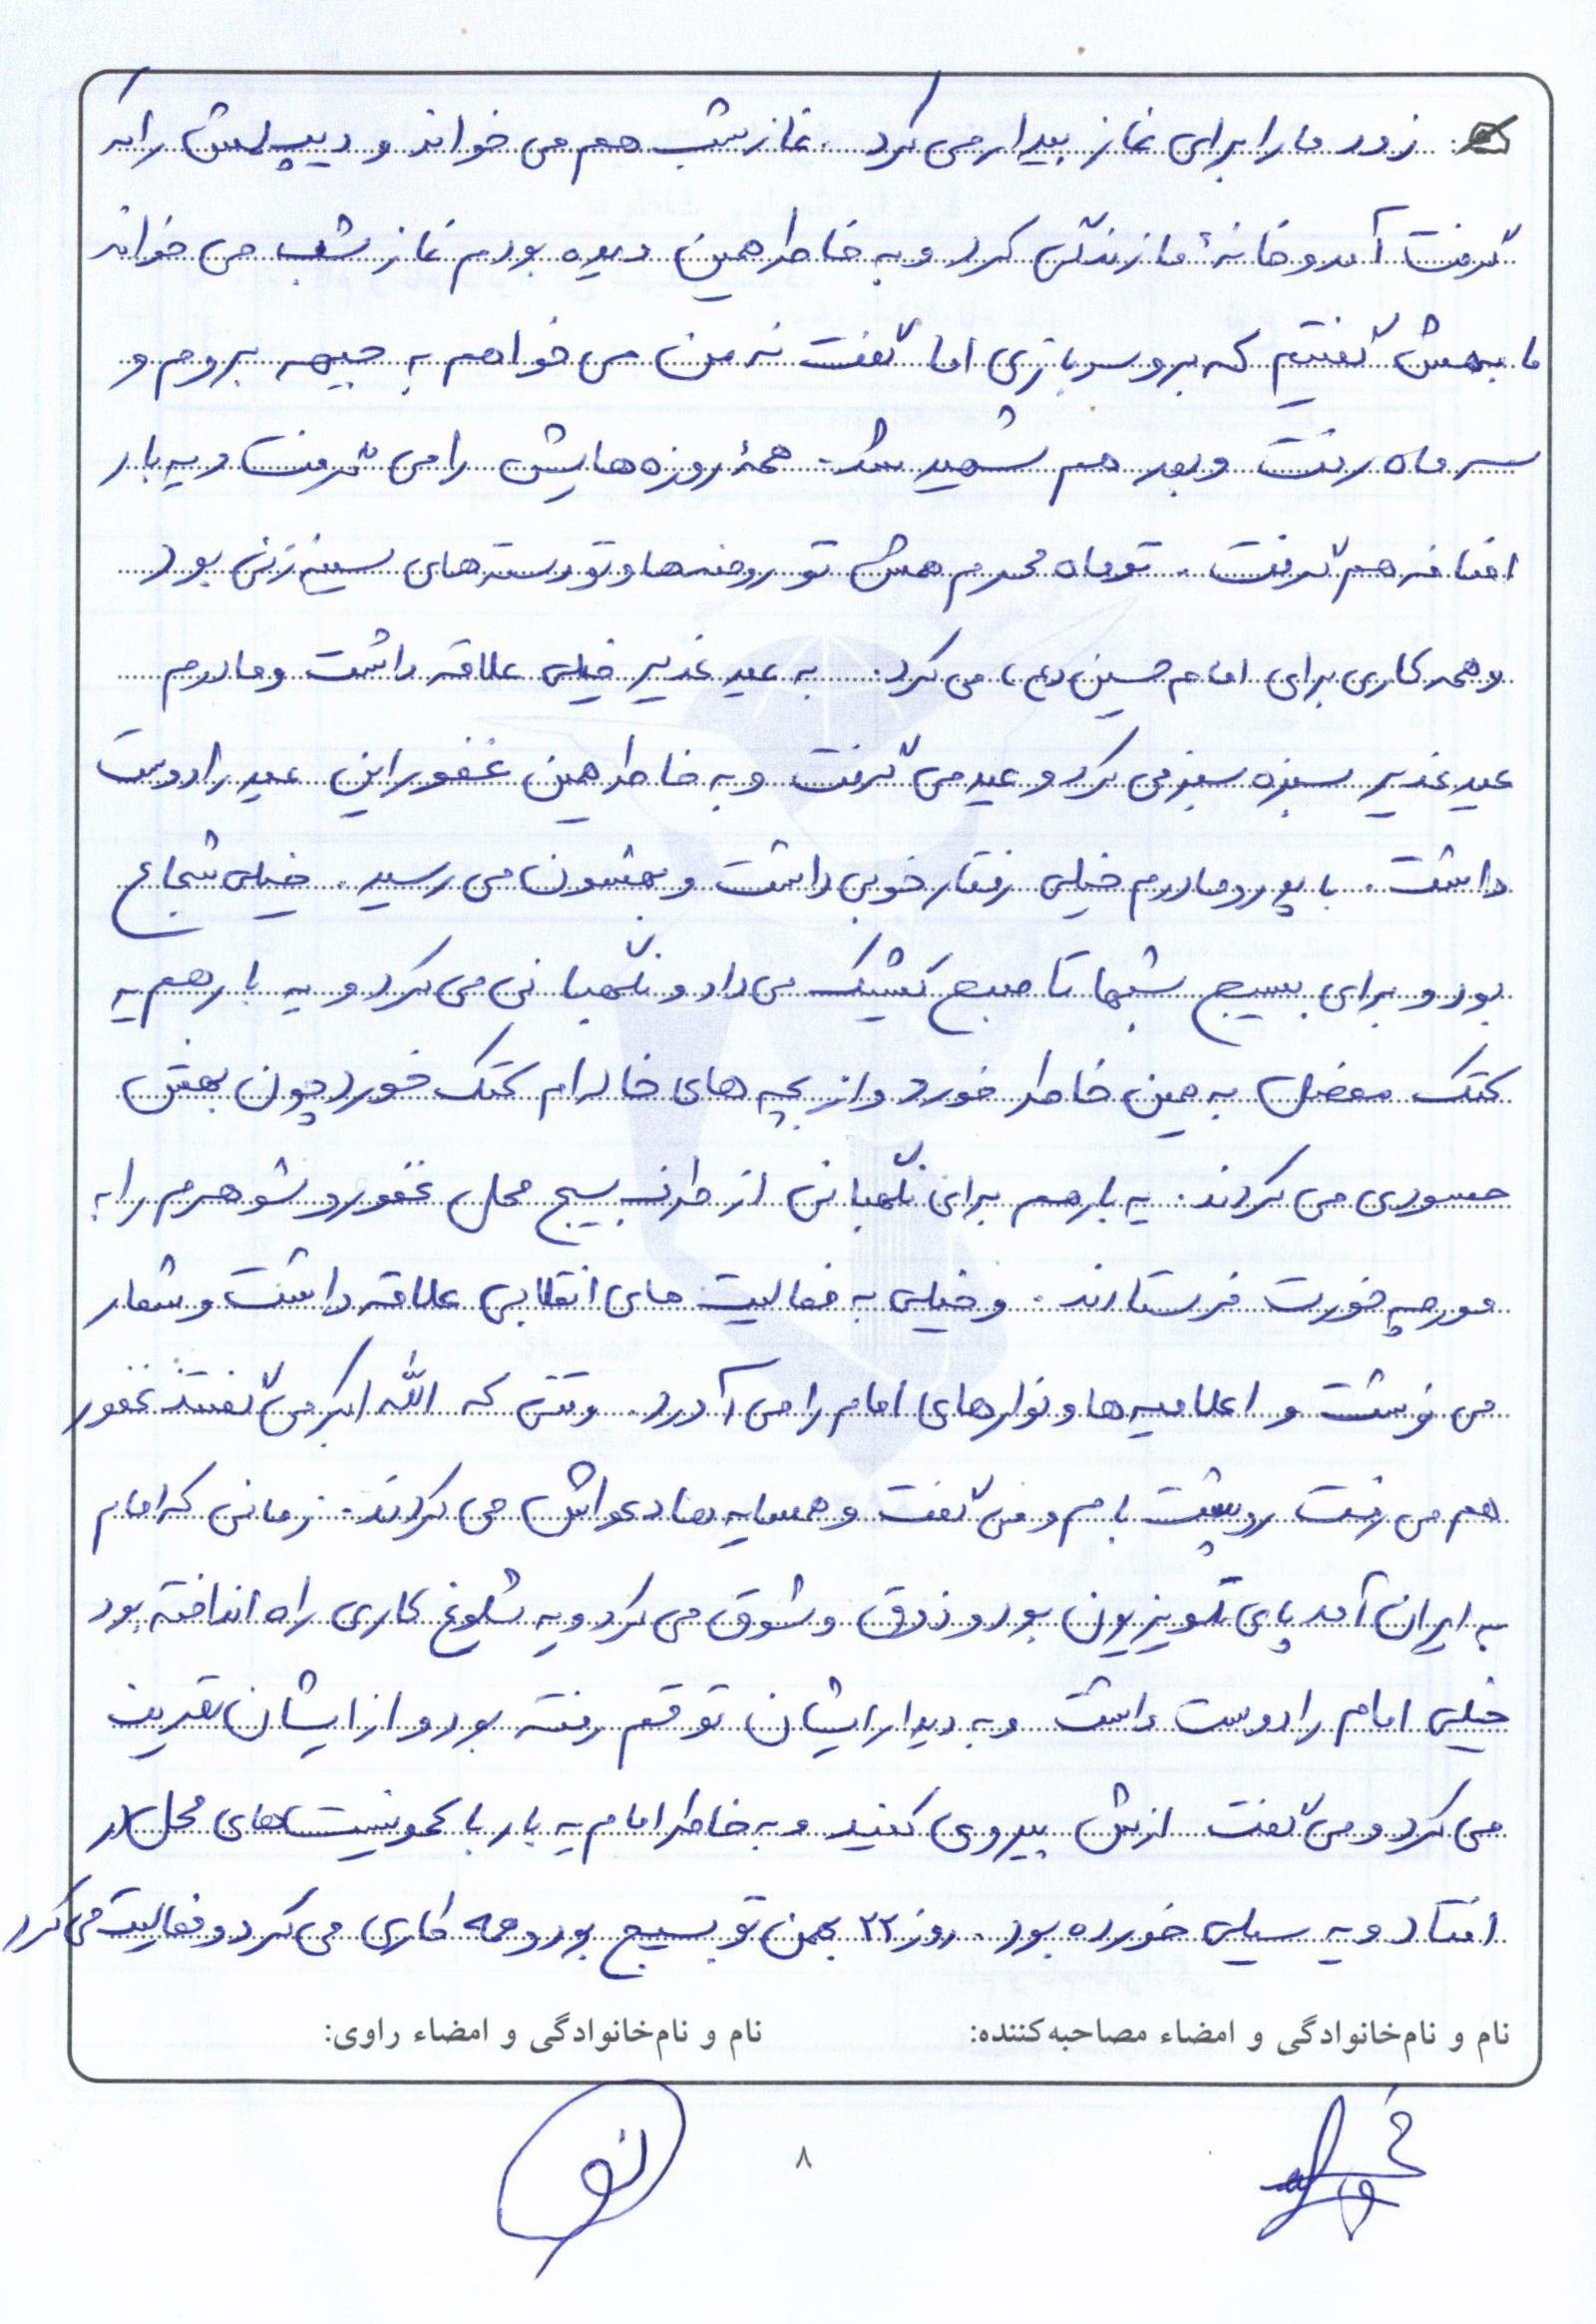 زود ما را برای نماز بیدار می کرد. نماز شب هم می خواند و دیپلمش را که
گرفت آمد و خانهٔ ما زندگی کرد و به خاطر همین دیده بودم نماز شب می خواند
ما بهش گفتیم که برو سربازی اما گفت نه من می خواهم به جبهه بروم و
سه ماه رفت و بعد هم شهید شد. همهٔ روزه هایش را می گرفت و یه بار
اضافه هم گرفت. تو ماه محرم همش تو روضه ها و تو دسته های سینه زنی بود
و همه کاری برای امام حسین (ع) می کرد. به عید غدیر خیلی علاقه داشت و مادرم
عید غدیر سبزه سبز می کرد و عید می گرفت و به خاطر همین غفور این عید را دوست
داشت. با پدر و مادرم خیلی رفتار خوبی داشت و بهشون می رسید. خیلی شجاع
بود و برای بسیج شبها تا صبح کشیک می داد و نگهبانی می کرد و یه بار هم یه
کتک مفصل به همین خاطر خورد و از بچه های خاله ام کتک خورد چون بهش
حسودی می کردند. یه بار هم برای نگهبانی از طرف بسیج محل غفور و شوهرم را به
مورچه خورت فرستادند. و خیلی به فعالیت های انقلابی علاقه داشت و شعار
می نوشت و اعلامیه ها و نوارهای امام را می آورد. وقتی که الله اکبر می گفتند غفور
هم می رفت رو پشت بام و می گفت و همسایه ها دعواش می کردند. زمانی که امام
به ایران آمد پای تلویزیون بود و ذوق و شوق می کرد و یه شلوغ کاری راه انداخته بود
خیلی امام را دوست داشت و به دیدار ایشان تو قم رفته بود و از ایشان تعریف
می کرد و می گفت ازش پیروی کنید و به خاطر امام یه بار با کمونیست های محل در
افتاد و یه سیلی خورده بود. روز ۲۲ بهمن تو بسیج بود و همه کاری می کرد و فعالیت می کرد
نام و نام‌خانوادگی و امضاء مصاحبه‌کننده: نام و نام‌خانوادگی و امضاء راوی:
۸